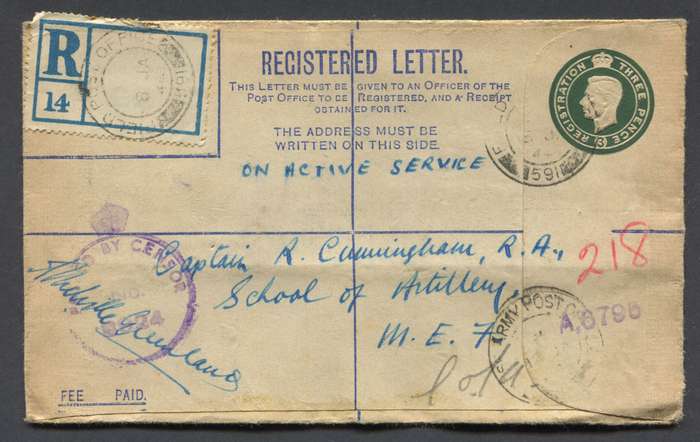 R
14
FIELD POST OFFICE
REGISTERED LETTER.
THIS LETTER MUST BE GIVEN TO AN OFFICER OF THE
POST OFFICE TO BE REGISTERED, AND A RECEIPT
OBTAINED FOR IT.
THE ADDRESS MUST BE
WRITTEN ON THIS SIDE.
REGISTRATION THREE PENCE (3)
591
ON ACTIVE SERVICE
BY CENSOR
NO.
Captain R. Cunningham, R.A.,
School of Artillery,
M.E.F
218
ARMY POST
A,6795
FEE PAID.